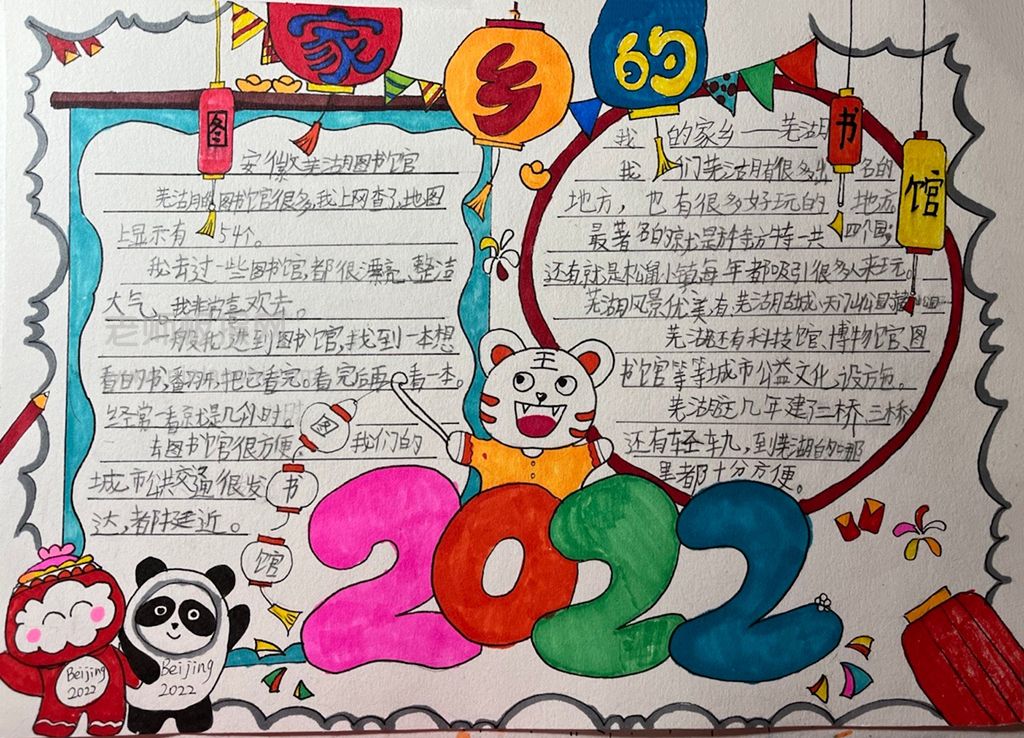 家乡的
图书馆
安徽芜湖图书馆
芜湖的图书馆很多,我上网查了,地图
上显示有54个。
我去过一些图书馆都很漂亮、整洁
大气,我非常喜欢去。
一般我进到图书馆,找到一本想
看的书,翻开,把它看完。看完后再看一本。
经常一看就是几小时。
去图书馆很方便,我们的
城市公共交通很发
达,都挺近。
我的家乡——芜湖
我们芜湖有很多出名的
地方,也有很多好玩的地方
最著名的就是方特一共四个园
还有就是松鼠小镇每年都吸引很多人来玩。
芜湖风景优美,有芜湖古城、天门山公园
芜湖还有科技馆、博物馆、图
书馆等等城市公益文化设施。
芜湖这几年建了二桥、三桥
还有轻轨,到芜湖的哪
里都十分方便。
图
书
馆
王
2022
Beijing
2022
Beijing
2022